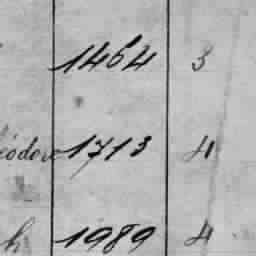 1464 3
éodore 1713 4
h 1989 4